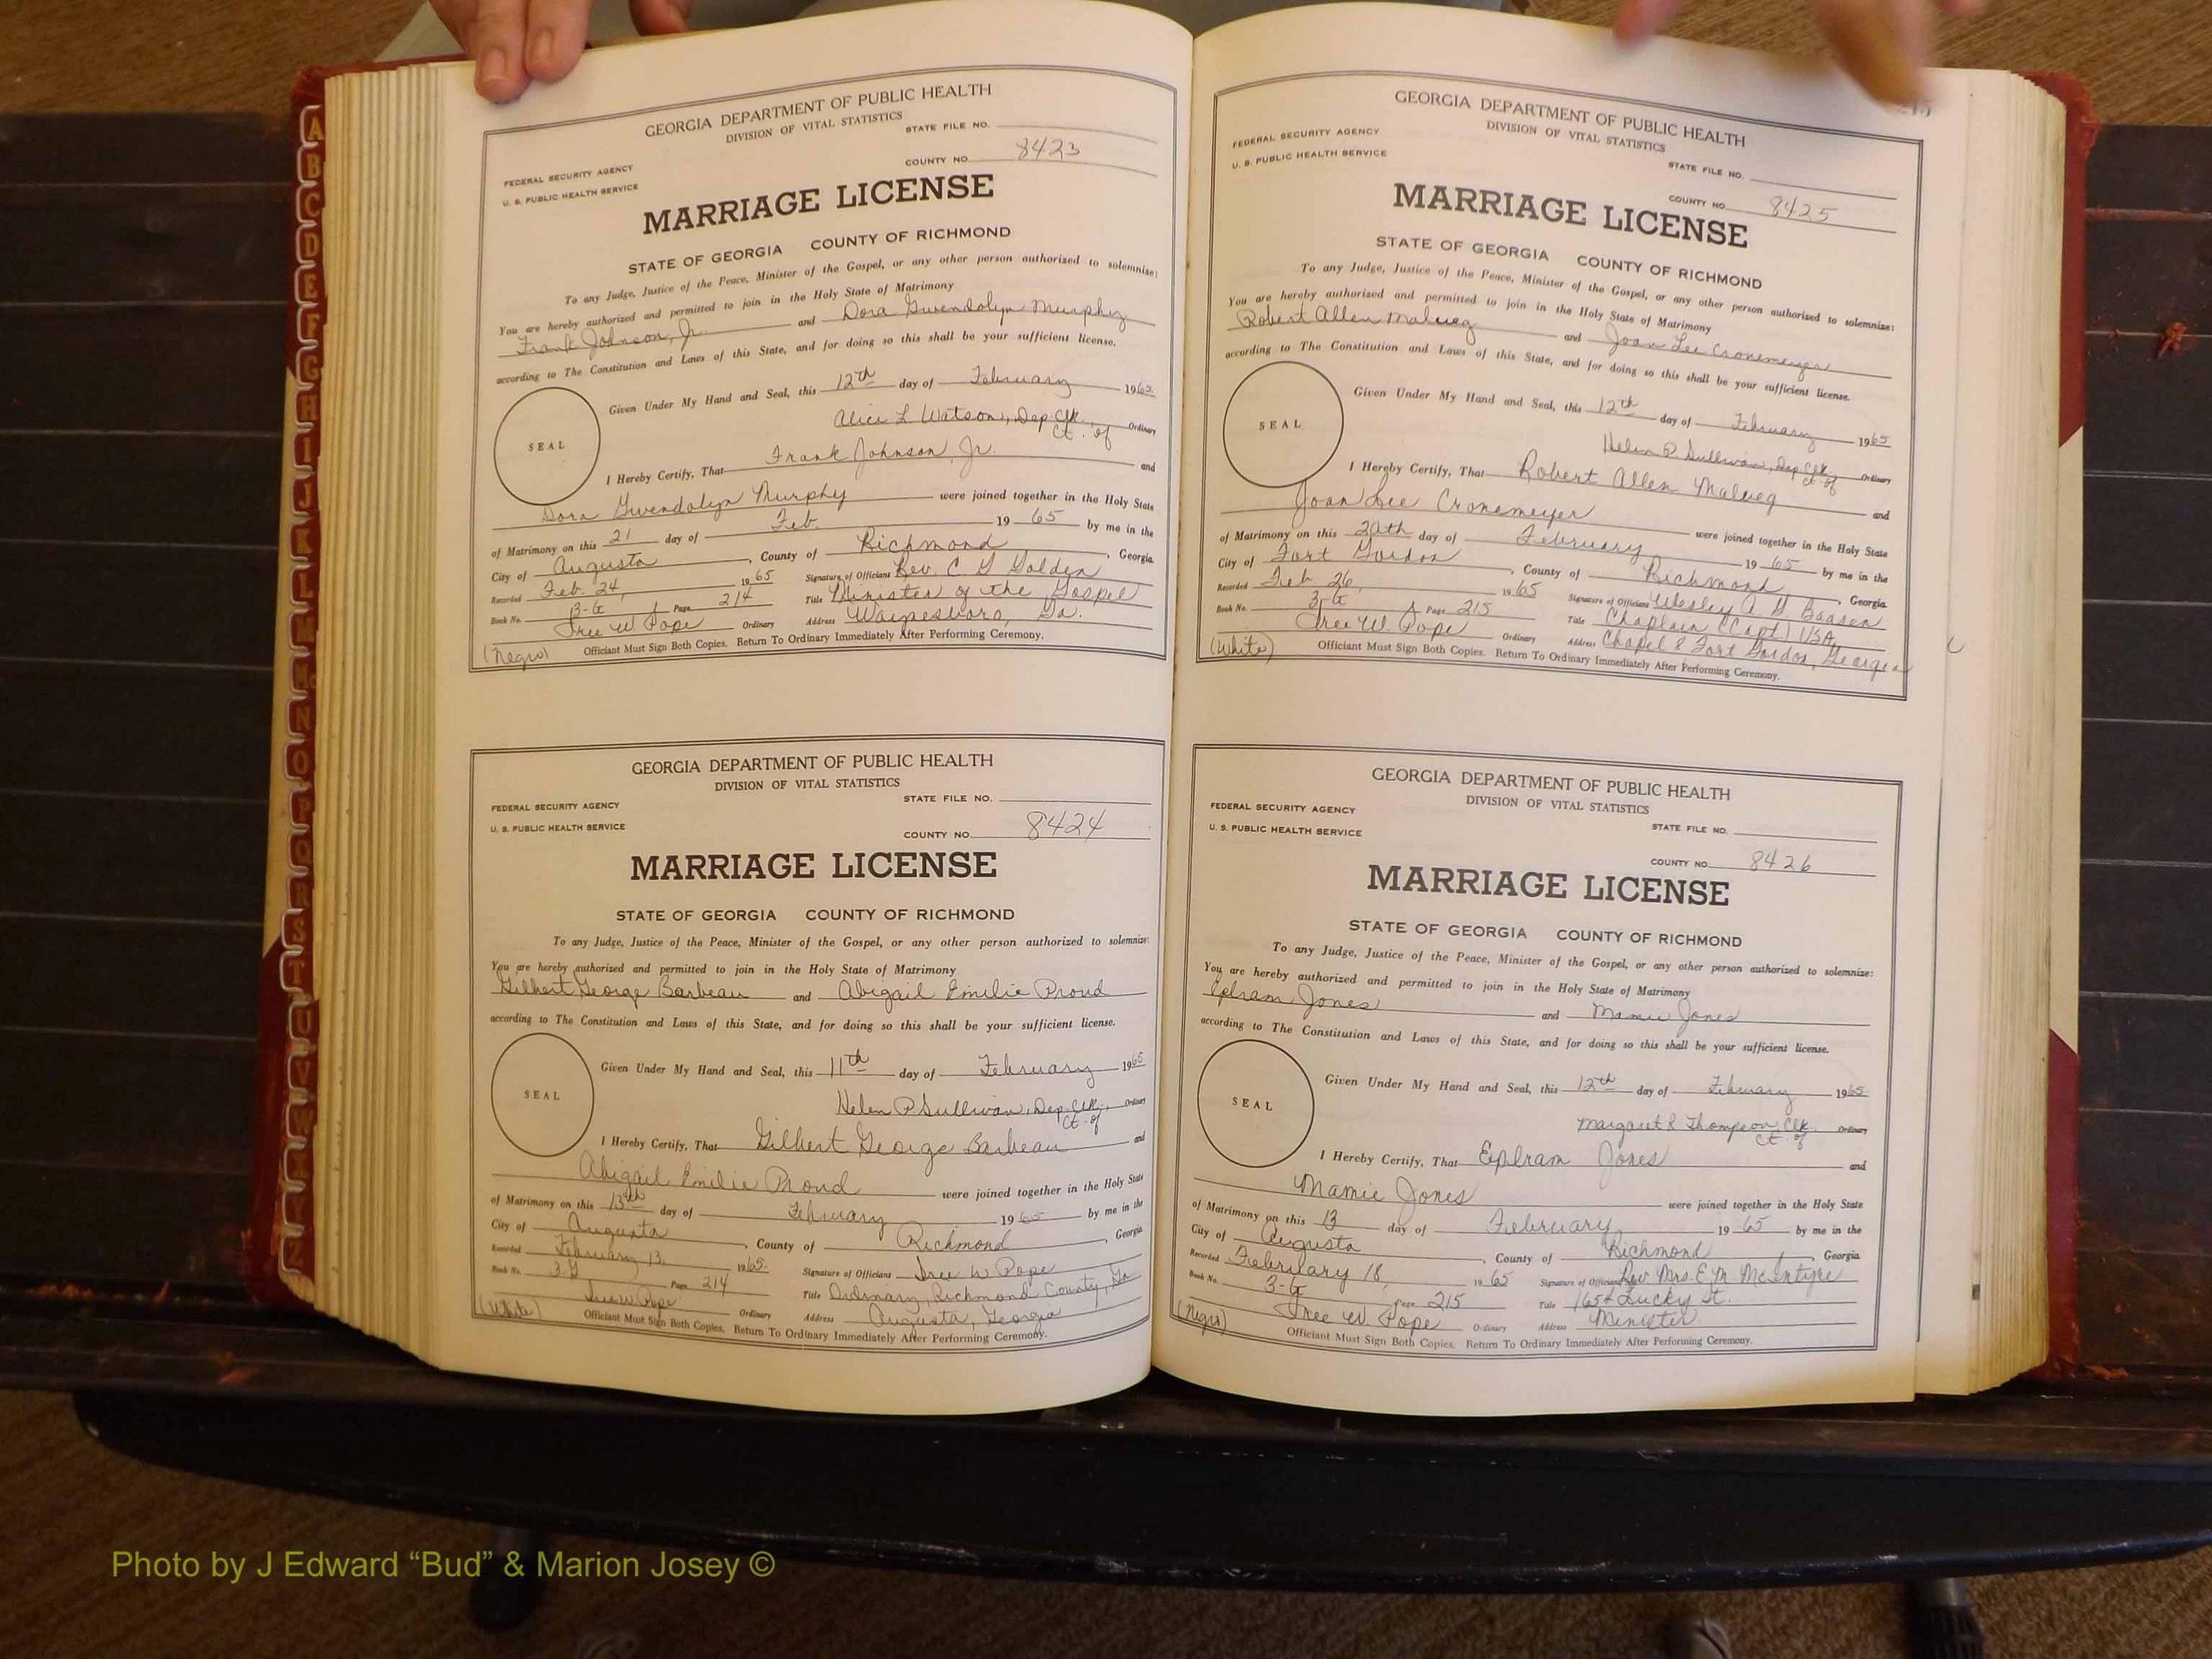 GEORGIA DEPARTMENT OF PUBLIC HEALTH
DIVISION OF VITAL STATISTICS
STATE FILE NO.
FEDERAL SECURITY AGENCY
COUNTY NO. 8423
U. S. PUBLIC HEALTH SERVICE
MARRIAGE LICENSE
STATE OF GEORGIA COUNTY OF RICHMOND
To any Judge, Justice of the Peace, Minister of the Gospel, or any other person authorized to solemnize:
You are hereby authorized and permitted to join in the Holy State of Matrimony
Frank Johnson, Jr. and Dora Gwendolyn Murphy
according to The Constitution and Laws of this State, and for doing so this shall be your sufficient license.
Given Under My Hand and Seal, this 12th day of February 1965
SEAL
Alice L Watson, Dep. Clk. Ordinary
Ct. of
I Hereby Certify, That Frank Johnson, Jr. and
Dora Gwendolyn Murphy were joined together in the Holy State
of Matrimony on this 21 day of Feb. 19 65 by me in the
City of Augusta, County of Richmond, Georgia.
Recorded Feb. 24, 1965 Signature of Officiant Rev. C. G Golden
Book No. 3-G Page 214 Title Minister of the Gospel
Tree W Pope Ordinary Address Waynesboro, Ga.
(Negro) Officiant Must Sign Both Copies. Return To Ordinary Immediately After Performing Ceremony.
GEORGIA DEPARTMENT OF PUBLIC HEALTH
DIVISION OF VITAL STATISTICS
STATE FILE NO.
FEDERAL SECURITY AGENCY
U. S. PUBLIC HEALTH SERVICE
COUNTY NO. 8424
MARRIAGE LICENSE
STATE OF GEORGIA COUNTY OF RICHMOND
To any Judge, Justice of the Peace, Minister of the Gospel, or any other person authorized to solemnize:
You are hereby authorized and permitted to join in the Holy State of Matrimony
Gilbert George Barbeau and Abigail Emilie Proud
according to The Constitution and Laws of this State, and for doing so this shall be your sufficient license.
Given Under My Hand and Seal, this 11th day of February 1965
SEAL
Helen P Sullivan, Dep. Clk., Ordinary
Ct. of
I Hereby Certify, That Gilbert George Barbeau and
Abigail Emilie Proud were joined together in the Holy State
of Matrimony on this 13th day of February 19 65 by me in the
City of Augusta, County of Richmond, Georgia
Recorded February 13, 1965. Signature of Officiant Tree W Pope
Book No. 3-G Page 214 Title Ordinary, Richmond County, Ga
Tree W Pope Ordinary Address Augusta, Georgia
(White) Officiant Must Sign Both Copies. Return To Ordinary Immediately After Performing Ceremony.
GEORGIA DEPARTMENT OF PUBLIC HEALTH
DIVISION OF VITAL STATISTICS
FEDERAL SECURITY AGENCY
U. S. PUBLIC HEALTH SERVICE
STATE FILE NO.
COUNTY NO. 8425
MARRIAGE LICENSE
STATE OF GEORGIA COUNTY OF RICHMOND
To any Judge, Justice of the Peace, Minister of the Gospel, or any other person authorized to solemnize:
You are hereby authorized and permitted to join in the Holy State of Matrimony
Robert Allen Malueg and Joan Lee Cronemeyer
according to The Constitution and Laws of this State, and for doing so this shall be your sufficient license.
Given Under My Hand and Seal, this 12th day of February 1965
SEAL
Helen P. Sullivan, Dep. Clk. Ordinary
Ct. of
I Hereby Certify, That Robert Allen Malueg and
Joan Lee Cronemeyer were joined together in the Holy State
of Matrimony on this 20th day of February 19 65 by me in the
City of Fort Gordon, County of Richmond, Georgia.
Recorded Feb 26, 1965 Signature of Officiant Wesley A G Baasen
Book No. 3-G Page 215 Title Chaplain (Capt.) USA
Tree W. Pope Ordinary Address Chapel 8 Fort Gordon, Georgia
(White) Officiant Must Sign Both Copies. Return To Ordinary Immediately After Performing Ceremony.
GEORGIA DEPARTMENT OF PUBLIC HEALTH
DIVISION OF VITAL STATISTICS
FEDERAL SECURITY AGENCY
U. S. PUBLIC HEALTH SERVICE
STATE FILE NO.
COUNTY NO. 8426
MARRIAGE LICENSE
STATE OF GEORGIA COUNTY OF RICHMOND
To any Judge, Justice of the Peace, Minister of the Gospel, or any other person authorized to solemnize:
You are hereby authorized and permitted to join in the Holy State of Matrimony
Ephram Jones and Mamie Jones
according to The Constitution and Laws of this State, and for doing so this shall be your sufficient license.
Given Under My Hand and Seal, this 12th day of February 1965
SEAL
Margaret R Thompson, Clk. Ordinary
Ct. of
I Hereby Certify, That Ephram Jones and
Mamie Jones were joined together in the Holy State
of Matrimony on this 13 day of February 19 65 by me in the
City of Augusta, County of Richmond, Georgia.
Recorded February 18, 1965 Signature of Officiant Rev Mrs. E. M. McIntyre
Book No. 3-G Page 215 Title 1654 Lucky St.
Tree W. Pope Ordinary Address Minister
(Negro) Officiant Must Sign Both Copies. Return To Ordinary Immediately After Performing Ceremony.
A
B
C
D
E
F
G
H
I
J
K
L
M
Mc
N
O
P
Q
R
S
T
U
V
W
Y
Z
Photo by J Edward “Bud” & Marion Josey ©